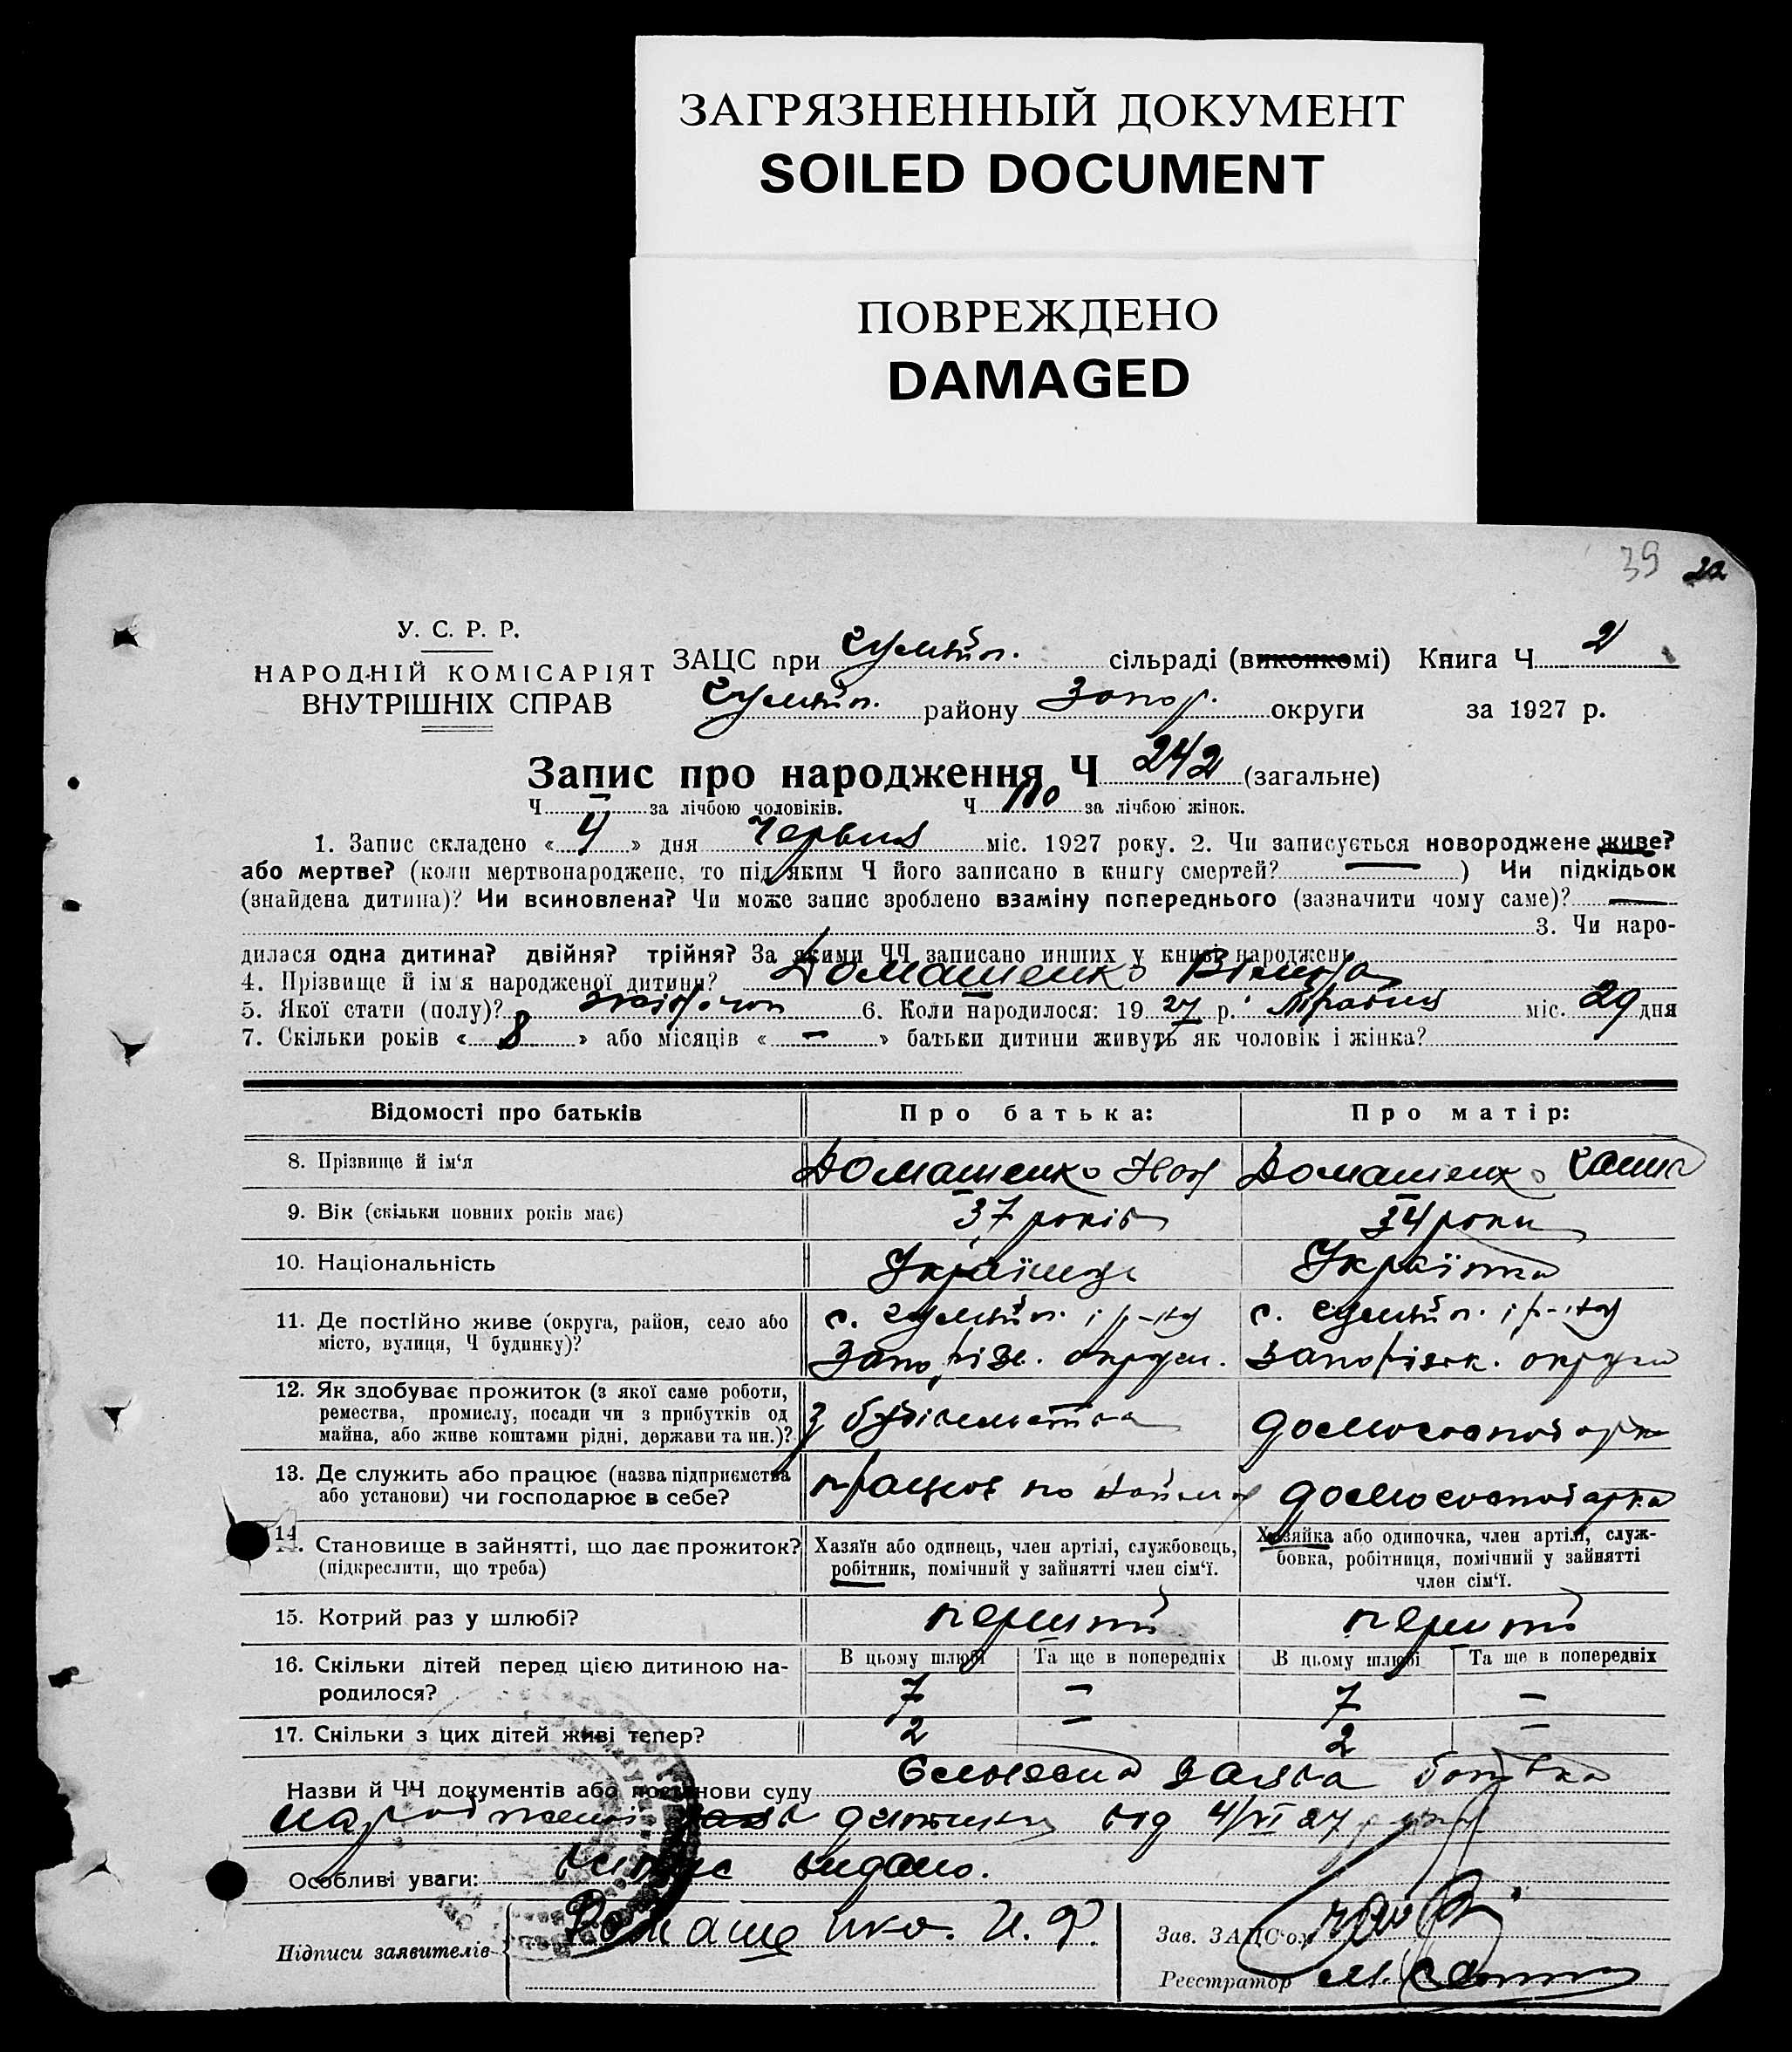 ЗАГРЯЗНЕННЫЙ ДОКУМЕНТ
SOILED DOCUMENT
ПОВРЕЖДЕНО
DAMAGED
39 22
У. С. Р. Р.
НАРОДНІЙ КОМІСАРІЯТ
ВНУТРІШНІХ СПРАВ
ЗАЦС при Гуляйп. сільраді (виконкомі) Книга Ч 2
Гуляйп. району Запор. округи за 1927 р.
Запис про народження Ч 242 (загальне)
Ч — за лічбою чоловіків. Ч 110 за лічбою жінок.
1. Запис складено « 4 » дня Червня міс. 1927 року. 2. Чи записується новороджене живе?
або мертве? (коли мертвонароджене, то під яким Ч його записано в книгу смертей? — ) Чи підкідьок
(знайдена дитина)? Чи всиновлена? Чи може запис зроблено взаміну попереднього (зазначити чому саме)? —
3. Чи наро-
дилася одна дитина? двійня? трійня? За якими ЧЧ записано инших у книзі народжень
4. Прізвище й ім'я народженої дитини? Домашенко
5. Якої стати (полу)? жіночої 6. Коли народилося: 19 27 р. Травня міс. 29 дня
7. Скільки років « 8 » або місяців « — » батьки дитини живуть як чоловік і жінка?
Відомості про батьків Про батька: Про матір:
8. Прізвище й ім'я Домашенко Домашенко Ганна
9. Вік (скільки повних років має) 37 років 34 роки
10. Національність Українець Українка
11. Де постійно живе (округа, район, село або
місто, вулиця, Ч будинку)?
с. Гуляйп. і р-ну
Запоріз. округи.
с. Гуляйп. і р-ну
Запорізьк. округи
12. Як здобуває прожиток (з якої саме роботи,
ремества, промислу, посади чи з прибутків од
майна, або живе коштами рідні, держави та ин.)?
з будівельства
домогосподарка
13. Де служить або працює (назва підприємства
або установи) чи господарює в себе?
працює по найму
домогосподарка
14. Становище в зайнятті, що дає прожиток?
(підкреслити, що треба)
Хазяїн або одинець, член артілі, службовець,
робітник, помічний у зайнятті член сім'ї.
Хазяйка або одиночка, член артілі, служ-
бовка, робітниця, помічний у зайнятті
член сім'ї.
15. Котрий раз у шлюбі? перший перший
16. Скільки дітей перед цією дитиною на-
родилося?
В цьому шлюбі Та ще в попередніх В цьому шлюбі Та ще в попередніх
7 — 7 —
17. Скільки з цих дітей живі тепер? 2 — 2 —
Назви й ЧЧ документів або постанови суду заява батька
дитини від 4/VI 27
Особливі уваги: видано.
Підписи заявителів Домашенко. И. Ф.
Зав. ЗАЦС'ом
Реєстратор